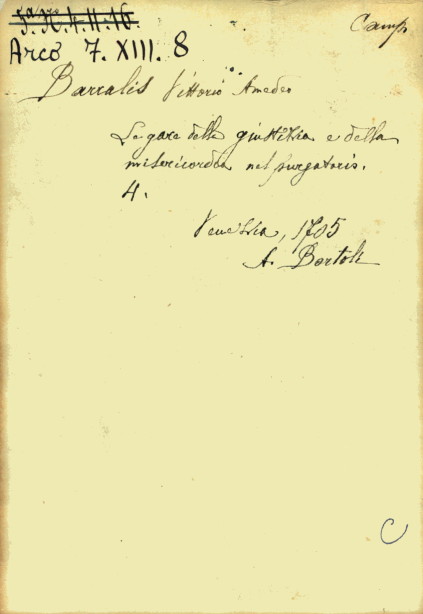 Camp.
Arco 7. XIII. 8
Barralis Vittorio Amedeo
Le gare della giustitia e della
misericordia nel purgatorio.
4.
Venetia, 1705
A. Bortoli
C